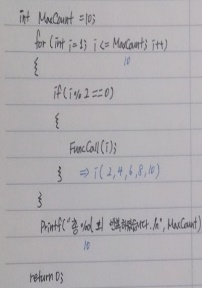 int MaxCount =10;
for (int i=1; i <= MaxCount; i++)
10
{
if(i%2==0)
{
FuncCall(i);
} => i(2,4,6,8,10)
}
Printf("총 %d 회 반복하였습니다./n", MaxCount)
10
return 0;